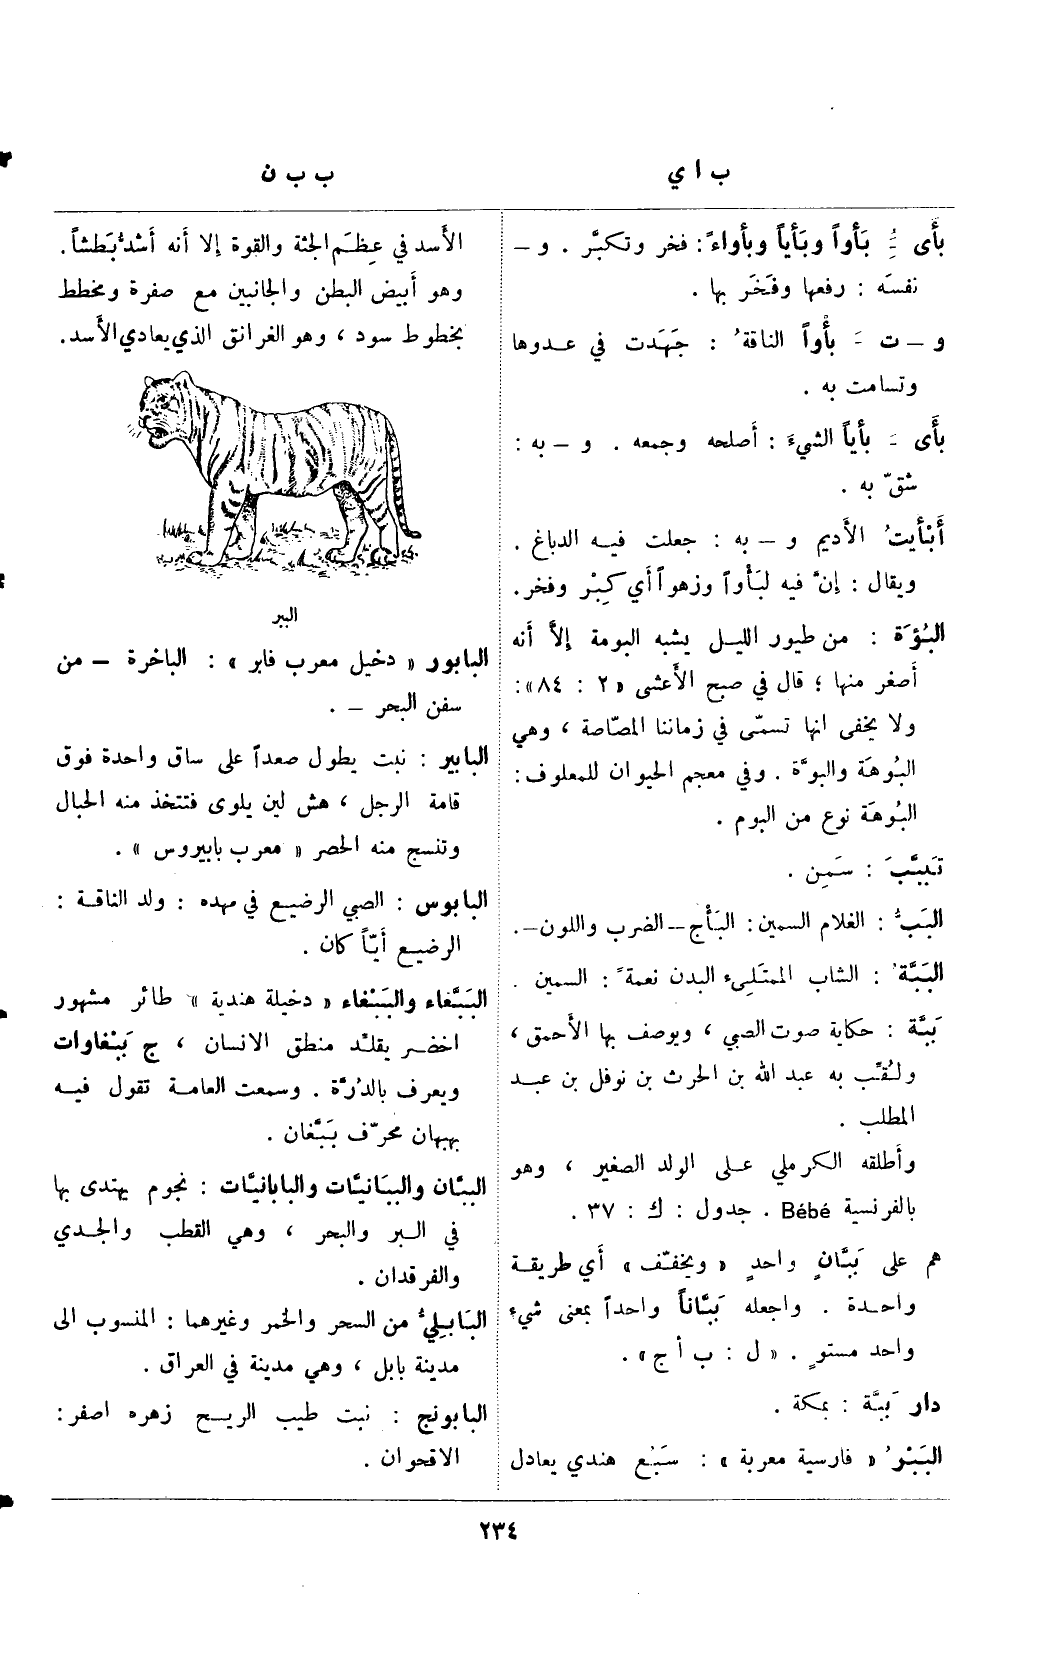 ب ا ي
ب ب ن
بأَى ـُـِ بَأواً وبَأياً وبأواءً: فخر وتكبَّر . و –
نفسَه : رفعها وفَخَر بها .
و – ت ـَ بأْواً الناقةُ : جَهَدت في عدوها
وتسامت به .
بأَى ـَ بأياً الشيءَ : أَصلحه وجمعه . و – به :
شقّ به .
أَبْأَيتُ الأَديم و – به : جعلت فيه الدباغ .
ويقال : إنَّ فيه لبَأْواً وزهواً أي كِبْر وفخر .
البُؤَة : من طيور الليل يشبه البومة إلاَّ أنه
أصغر منها ؛ قال في صبح الأَعشى «٢ : ٨٤» :
ولا يخفى انها تسمّى في زماننا المصّاصة ، وهي
البُوهَة والبوَّة . وفي معجم الحيوان للمعلوف :
البُوهَة نوع من البوم .
تَبَبَّبَ : سَمِن .
البَبُّ : الغلام السمين : البَأْج – الضرب واللون – .
البَبَّةُ : الشاب الممتَلِىء البدن نعمةً : السمين .
بَبَّة : حكاية صوت الصبي ، ويوصف بها الأحمق ،
ولُقِّب به عبد الله بن الحرث بن نوفل بن عبد
المطلب .
وأَطلقه الكرملي على الولد الصغير ، وهو
بالفرنسية Bébé . جدول : ك : ٣٧ .
هم على بَبَّانٍ واحدٍ « ويخفّف » أَي طريقة
واحدة . واجعله بَبَّاناً واحداً بمعنى شيء
واحد مستوٍ . « ل : ب أ ج » .
دار بَبَّة : بمكة .
البَبْرُ « فارسية معربة » : سَبُع هندي يعادل
الأَسد في عِظَم الجثة والقوة إلا أنه أشدُّ بَطشاً .
وهو أَبيض البطن والجانبين مع صفرة ومخطط
بخطوط سود ، وهو الغرانق الذي يعادي الأَسد .
الببر
البابور « دخيل معرب فابر » : الباخرة – من
سفن البحر – .
البابير : نبت يطول صعداً على ساق واحدة فوق
قامة الرجل ، هش لين يلوى فتتخذ منه الحبال
وتنسج منه الحصر « معرب بابيروس » .
البابوس : الصبي الرضيع في مهده : ولد الناقة :
الرضيع أَيّاً كان .
البَبَّغاء والبَبْغاء « دخيلة هندية » طائر مشهور
اخضر يقلّد منطق الانسان ، ج بَبْغاوات
ويعرف بالدُرَّة . وسمعت العامة تقول فيه
بهبهان محرّف بَبَّغان .
الببَّان والببَانيَّات والبابانيَّات : نجوم يهتدى بها
في البر والبحر ، وهي القطب والجدي
والفرقدان .
البَابِليُّ من السحر والخمر وغيرهما : المنسوب الى
مدينة بابل ، وهي مدينة في العراق .
البابونج : نبت طيب الريح زهره اصفر :
الاقحوان .
٢٣٤